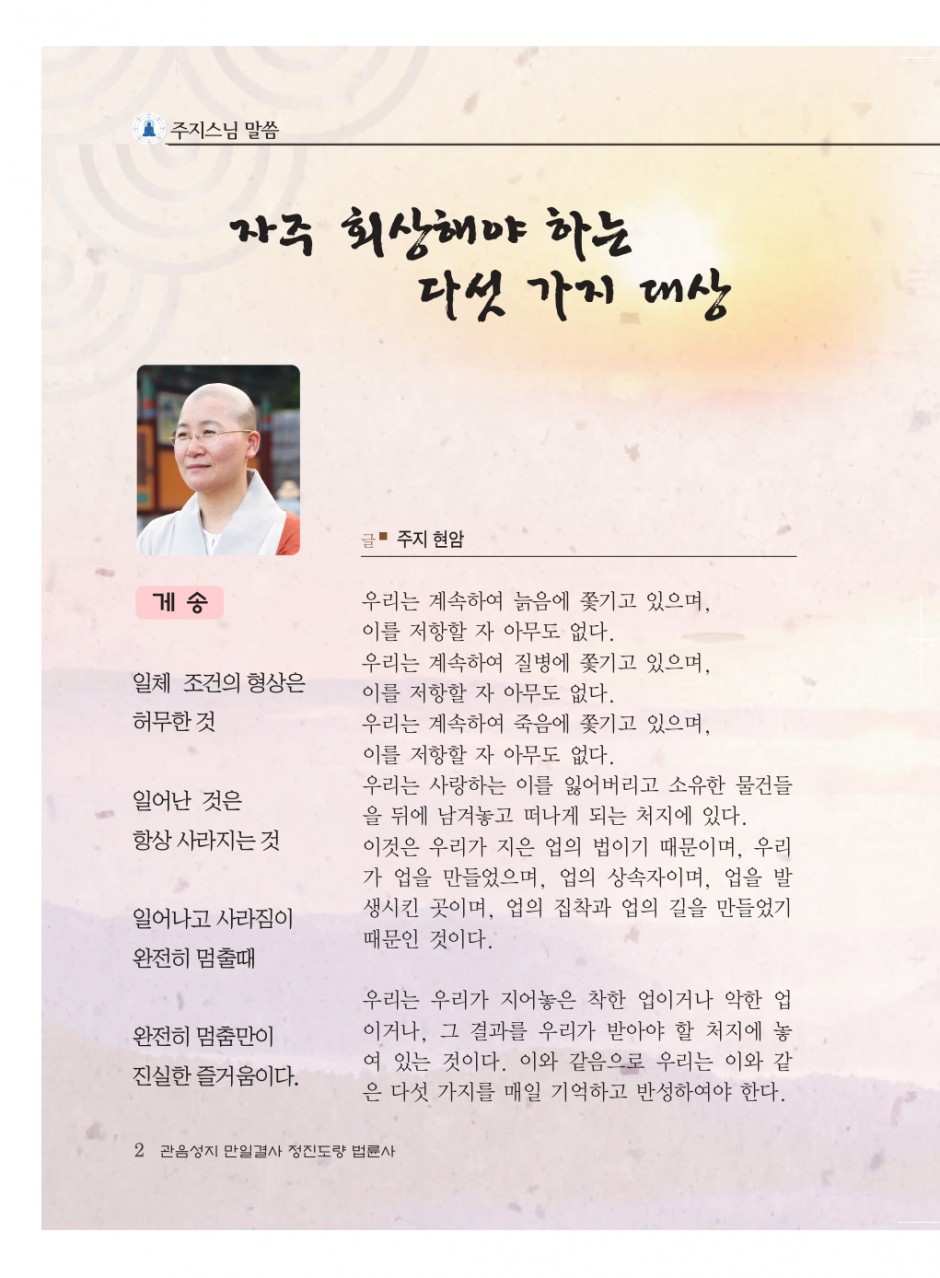 주지스님 말씀
자주 회상해야 하는
다섯 가지 대상
글■ 주지 현암
게 송
일체 조건의 형상은
허무한 것
일어난 것은
항상 사라지는 것
일어나고 사라짐이
완전히 멈출때
완전히 멈춤만이
진실한 즐거움이다.
우리는 계속하여 늙음에 쫓기고 있으며,
이를 저항할 자 아무도 없다.
우리는 계속하여 질병에 쫓기고 있으며,
이를 저항할 자 아무도 없다.
우리는 계속하여 죽음에 쫓기고 있으며,
이를 저항할 자 아무도 없다.
우리는 사랑하는 이를 잃어버리고 소유한 물건들
을 뒤에 남겨놓고 떠나게 되는 처지에 있다.
이것은 우리가 지은 업의 법이기 때문이며, 우리
가 업을 만들었으며, 업의 상속자이며, 업을 발
생시킨 곳이며, 업의 집착과 업의 길을 만들었기
때문인 것이다.
우리는 우리가 지어놓은 착한 업이거나 악한 업
이거나, 그 결과를 우리가 받아야 할 처지에 놓
여 있는 것이다. 이와 같음으로 우리는 이와 같
은 다섯 가지를 매일 기억하고 반성하여야 한다.
2 관음성지 만일결사 정진도량 법륜사